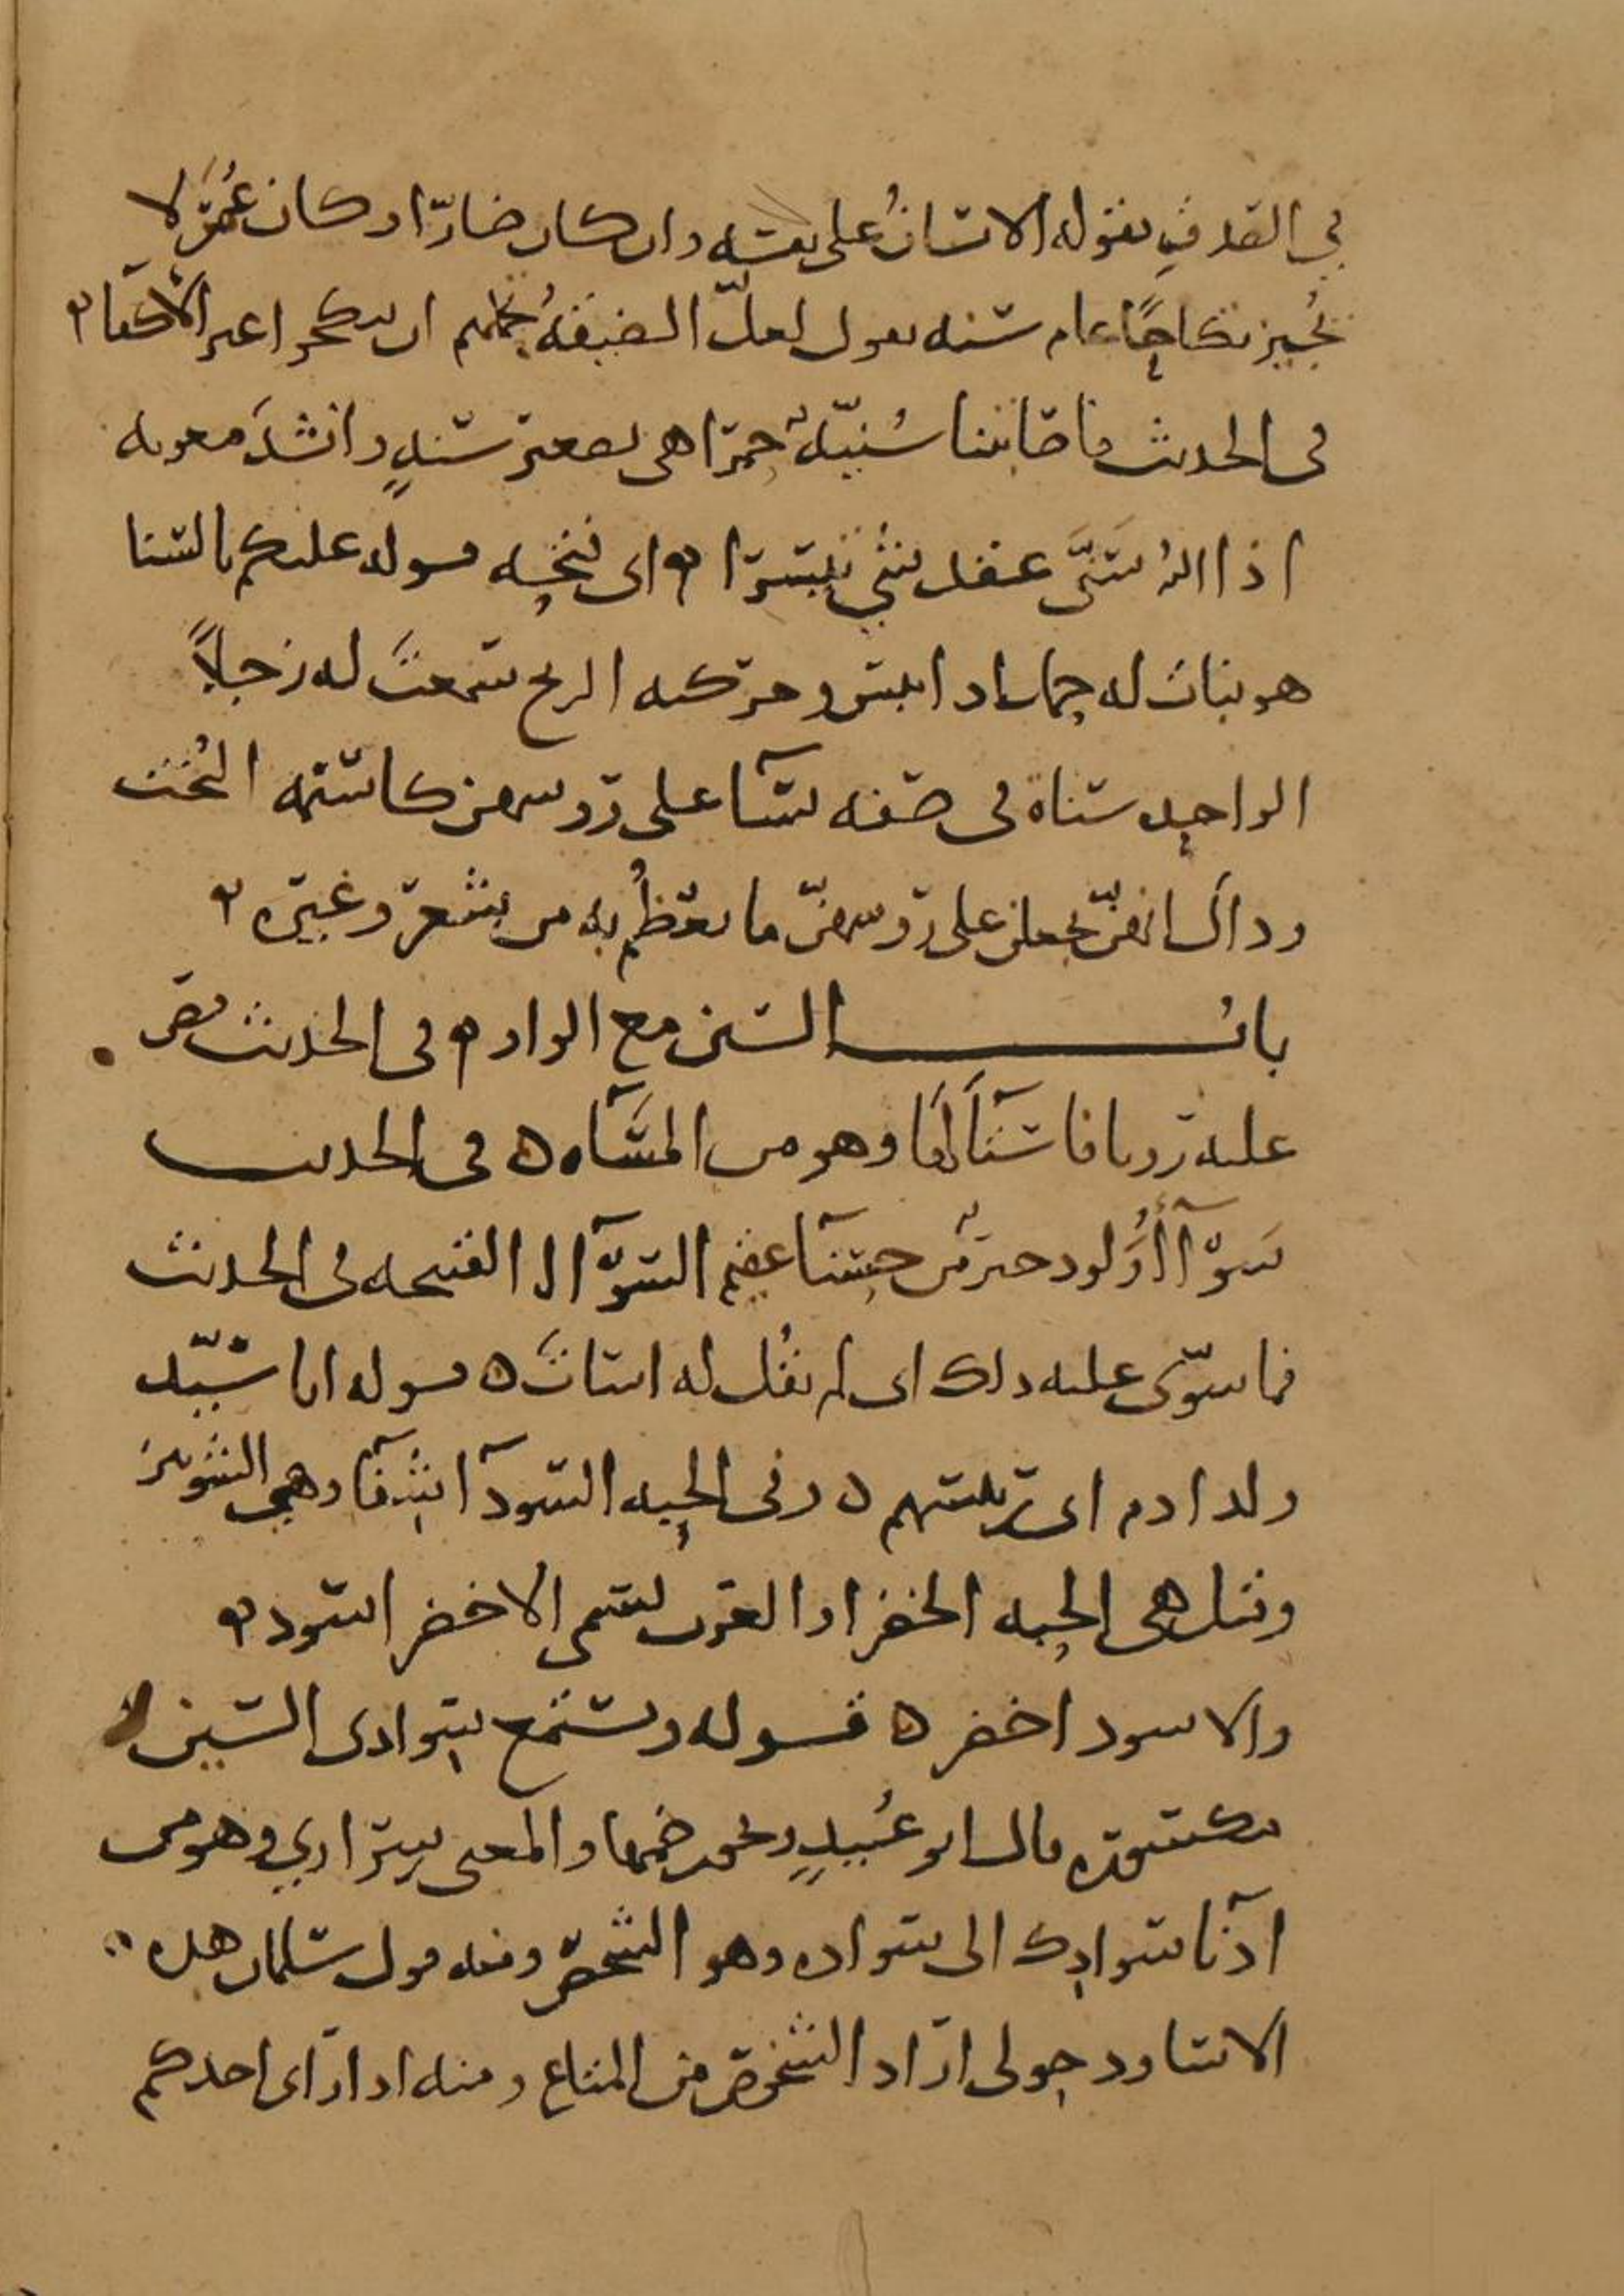 في القدف يقوله الانسان على نفسه وان كان ضارّا وكان عُمَر لا
يُجيز نكاحًا عام سَنه يقول لعلّ الضيقة تحملهم ان ينكحوا غير الأكفاء
في الحديث فاصابتنا سُنَيّةٌ حمرا هي تصغير سنةٍ وانشدَ معويه
اذا اللهُ سَنَّى عقد شيء تيسرا اى فتحه قوله عليكم بالسنا
هو نبات له حمل اذا يبس وحركته الريح سمعتَ له زجلًا
الواحد سناة في صفه نسآ على روسهن كاسنمه البُخت
وذاك انهنّ يجعلن على روسهنّ ما يعظمُ به من شعر وغيره
باب السين مع الواو في الحديث فقص
عليه رويا فاستآ لها وهو من المسآه في الحديث
سَوآأُ وَلود خير من حسنآ عقيم السوّآ القبيحه في الحديث
فما سوّى عليه ذلك اى لم يقُل له اسات قوله انا سيّد
ولد ادم اى رييسهم وفي الحبه السودآ شفآ وهي الشونيز
وقيل هي الحبه الخضرا والعرب تسمى الاخضر اسود
والاسود اخضر قوله وتستمع سوادى السين
مكسورة قال ابو عُبيدٍ ويجوز ضمها والمعنى سِرَارِي وهو من
ادنآ سوادك الى سواده وهو الشخص ومنه قول سلمان هذه
الاساود حولى اراد الشخوص من المتاع ومنه اذا راى احدكم